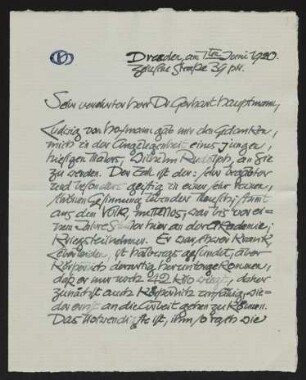 Dresden, am 1ten Juni 1920.
Zöllnerstraße 39 ptr.
Sehr verehrter Herr Dr. Gerhart Hauptmann,
Ludwig von Hofmann gab mir den Gedanken,
mich in der Angelegenheit eines jungen,
hiesigen Malers, Wilhelm Rudolph, an Sie
zu wenden. Der Fall ist der: sehr begabter
und besonders geistig in einer sehr reinen,
Gesinnung lebender Mensch, stammt
aus dem Volk, mittellos, war bis vor ei-
nem Jahre Schüler hier an der Akademie,
Kriegsteilnehmer. Er war schwer krank,
ist halbwegs gesundet, aber
körperlich derartig heruntergekommen,
daß er nur noch 42 Kilo wiegt, daher
zunächst auch körperlich unfähig, wie-
der ernst an die Arbeit gehen zu können.
Das Notwendigste ist, ihm so rasch wie